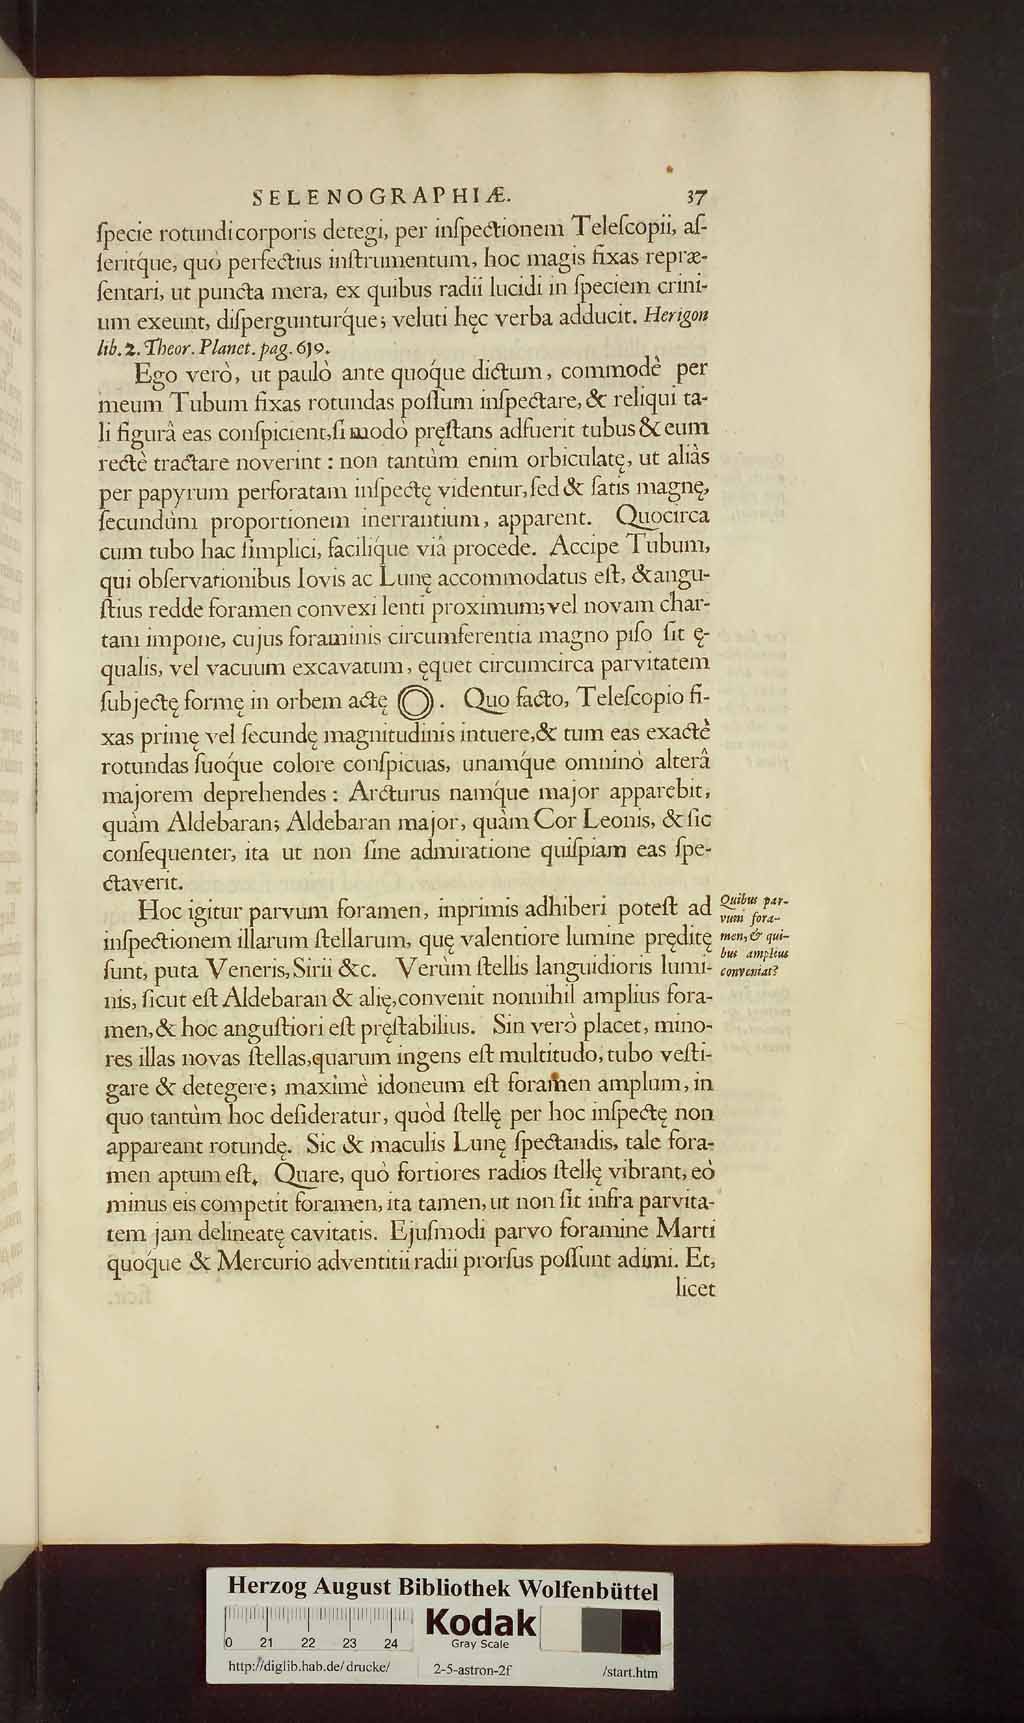 SELENOGRAPHIÆ. 37
ſpecie rotundi corporis detegi, per inſpectionem Teleſcopii, aſ-
ſeritq́ue, quò perfectius inſtrumentum, hoc magis fixas repræ-
ſentari, ut puncta mera, ex quibus radii lucidi in ſpeciem crini-
um exeunt, diſpergunturq́ue; veluti hęc verba adducit. Herigon
lib. 2. Theor. Planet. pag. 619.
Ego verò, ut paulò ante quoq́ue dictum, commodè per
meum Tubum fixas rotundas poſſum inſpectare, & reliqui ta-
li figurâ eas conſpicient, ſi modò pręſtans adfuerit tubus & eum
rectè tractare noverint : non tantùm enim orbiculatę, ut aliàs
per papyrum perforatam inſpectę videntur, ſed & ſatis magnę,
ſecundùm proportionem inerrantium, apparent. Quocirca
cum tubo hac ſimplici, faciliq́ue viâ procede. Accipe Tubum,
qui obſervationibus Iovis ac Lunę accommodatus eſt, & angu-
ſtius redde foramen convexi lenti proximum; vel novam char-
tam impone, cujus foraminis circumferentia magno piſo ſit ę-
qualis, vel vacuum excavatum, ęquet circumcirca parvitatem
ſubjectę formę in orbem actę . Quo facto, Teleſcopio fi-
xas primę vel ſecundę magnitudinis intuere, & tum eas exactè
rotundas ſuoq́ue colore conſpicuas, unamq́ue omninò alterâ
majorem deprehendes : Arcturus namq́ue major apparebit,
quàm Aldebaran; Aldebaran major, quàm Cor Leonis, & ſic
conſequenter, ita ut non ſine admiratione quiſpiam eas ſpe-
ctaverit.
Hoc igitur parvum foramen, inprimis adhiberi poteſt ad
inſpectionem illarum ſtellarum, quę valentiore lumine pręditę
ſunt, puta Veneris, Sirii &c. Verùm ſtellis languidioris lumi-
nis, ſicut eſt Aldebaran & alię, convenit nonnihil amplius fora-
men, & hoc anguſtiori eſt pręſtabilius. Sin verò placet, mino-
res illas novas ſtellas, quarum ingens eſt multitudo, tubo veſti-
gare & detegere; maximè idoneum eſt foramen amplum, in
quo tantùm hoc deſideratur, quòd ſtellę per hoc inſpectę non
appareant rotundę. Sic & maculis Lunę ſpectandis, tale fora-
men aptum eſt. Quare, quò fortiores radios ſtellę vibrant, eò
minus eis competit foramen, ita tamen, ut non ſit infra parvita-
tem jam delineatę cavitatis. Ejuſmodi parvo foramine Marti
quoq́ue & Mercurio adventitii radii prorſus poſſunt adimi. Et,
licet
Quibus par-
vum fora-
men, & qui-
bus amplius
conveniat?
Herzog August Bibliothek Wolfenbüttel
Kodak
Gray Scale
0 21 22 23 24
http://diglib.hab.de/drucke/ 2-5-astron-2f /start.htm